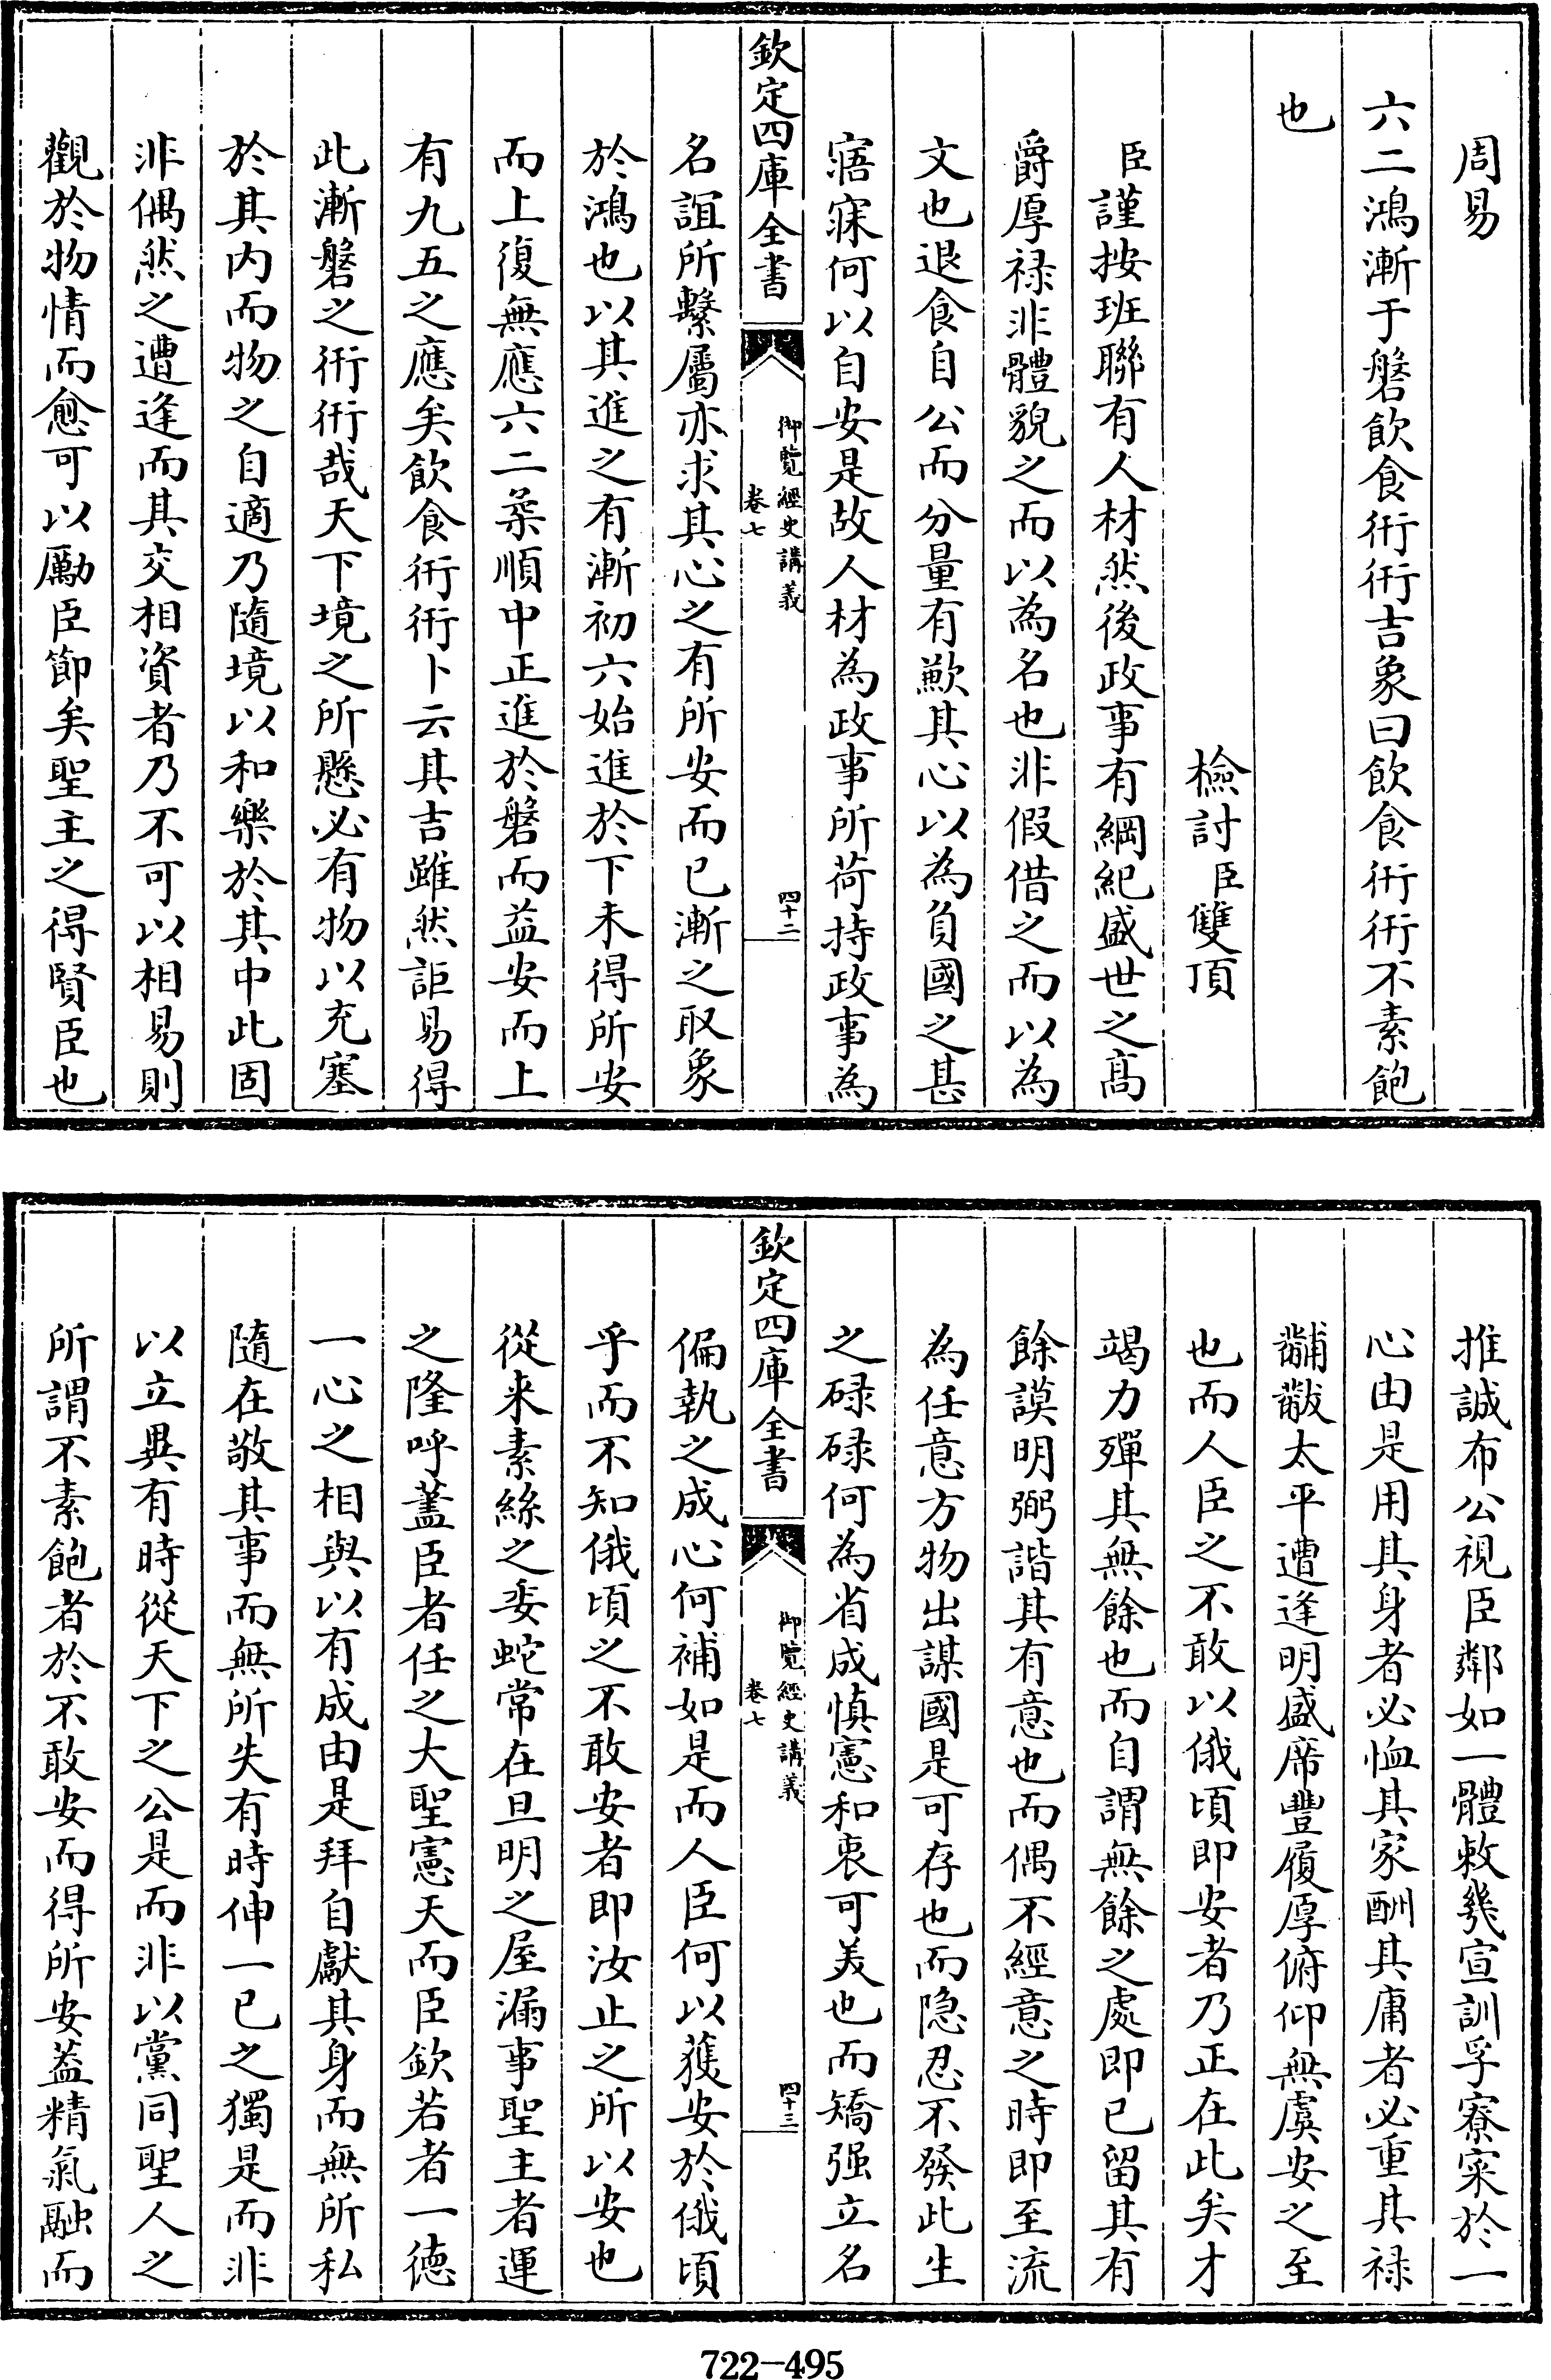 周易
六二鴻漸于磐飲食衎衎吉象曰飲食衎衎不素飽
也
檢討臣雙頂
臣謹按班聯有人材然後政事有綱紀盛世之髙
爵厚禄非體貌之而以為名也非假借之而以為
文也退食自公而分量有歉其心以為負國之甚
寤寐何以自安是故人材為政事所荷持政事為
欽定四庫全書
御覽經史講義
卷七
四十二
名誼所繫屬亦求其心之有所安而已漸之取象
於鴻也以其進之有漸初六始進於下未得所安
而上復無應六二柔順中正進於磐而益安而上
有九五之應矣飲食衎衎卜云其吉雖然詎易得
此漸磐之衎衎哉天下境之所懸必有物以充塞
於其内而物之自適乃隨境以和樂於其中此固
非偶然之遭逢而其交相資者乃不可以相易則
觀於物情而愈可以勵臣節矣聖主之得賢臣也
推誠布公視臣鄰如一體敕幾宣訓孚寮寀於一
心由是用其身者必恤其家酬其庸者必重其禄
黼黻太平遭逢明盛席豐履厚俯仰無虞安之至
也而人臣之不敢以俄頃即安者乃正在此矣才
竭力殫其無餘也而自謂無餘之處即已留其有
餘謨明弼諧其有意也而偶不經意之時即至流
為任意方物出謀國是可存也而隐忍不發此生
之碌碌何為省成慎憲和衷可美也而矯强立名
欽定四庫全書
御覽經史講義
卷七
四十三
偏執之成心何補如是而人臣何以獲安於俄頃
乎而不知俄頃之不敢安者即汝止之所以安也
從来素絲之委蛇常在旦明之屋漏事聖主者運
之隆呼蓋臣者任之大聖憲天而臣欽若者一德
一心之相與以有成由是拜自獻其身而無所私
隨在敬其事而無所失有時伸一已之獨是而非
以立異有時從天下之公是而非以黨同聖人之
所謂不素飽者於不敢安而得所安葢精氣融而
722-495